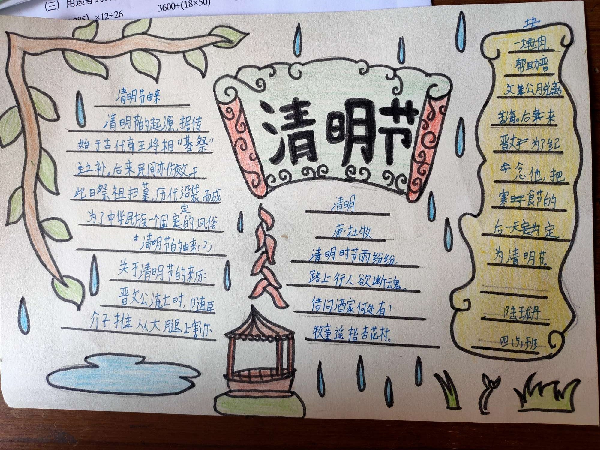 3600÷(18×50)
×12÷26
清明节
清明节的起源,据传
始于古代帝王将相"墓祭"
之礼,后来民间亦仿效,于
此日祭祖扫墓,历代沿袭而成
为了中华民族一个固定的风俗
关于清明节的来历:
晋文公流亡时,
介子推从大腿上割尔
清明
清明时节雨纷纷
路上行人欲断魂
借问酒家何处有?
牧童遥指杏花村
一块肉
帮助晋
文公
后来
晋文公为了纪
念他,把
寒食节的
后一天定
为清明节
班